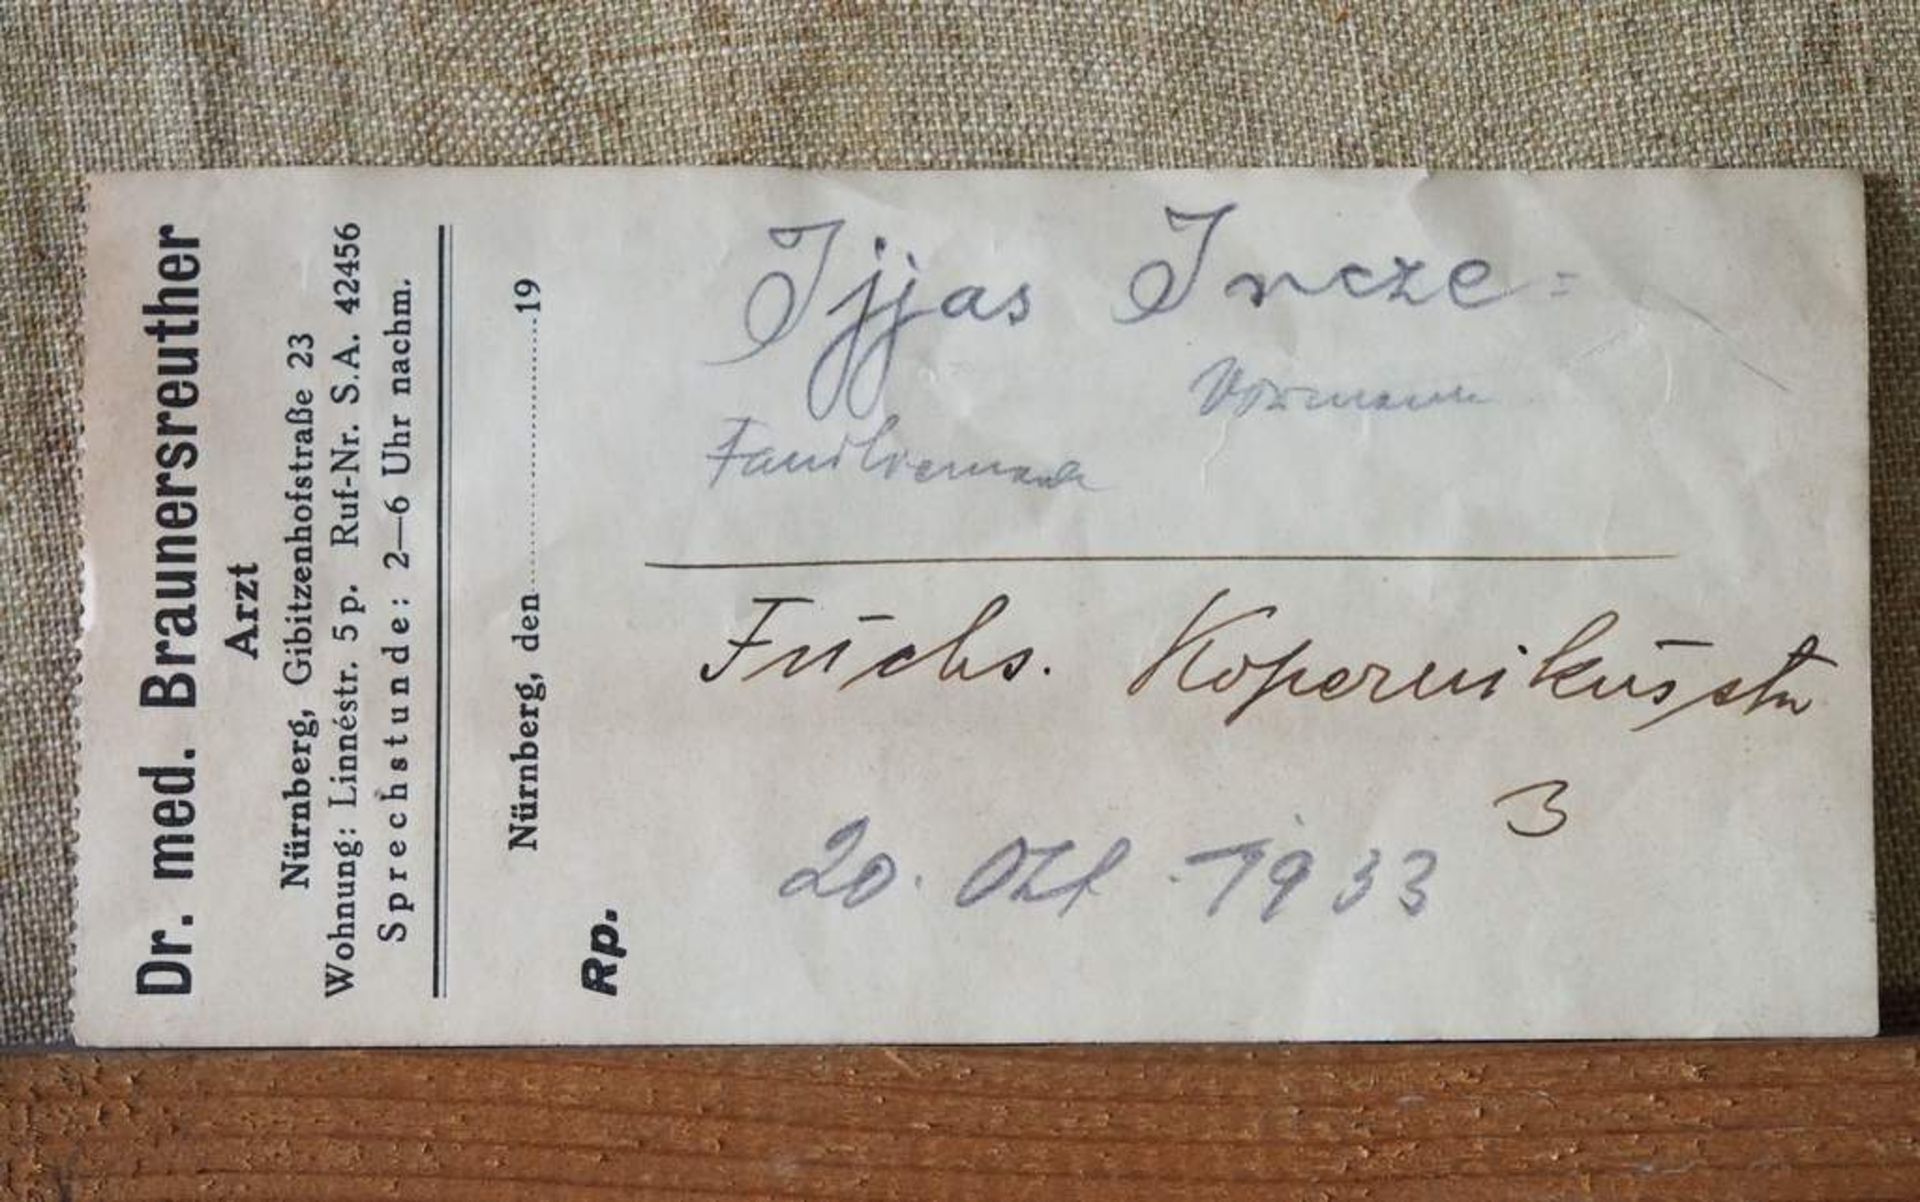 Dr. med. Braunersreuther
Arzt
Nürnberg, Gibitzenhofstraße 23
Wohnung: Linnéstr. 5 p. Ruf-Nr. S.A. 42456
Sprechstunde: 2—6 Uhr nachm.
Nürnberg, den..........................19
Rp.
Ijjas Incze
Vorname
Familienname
Fuchs. Kopernikusstr
3
20. Okt. 1933